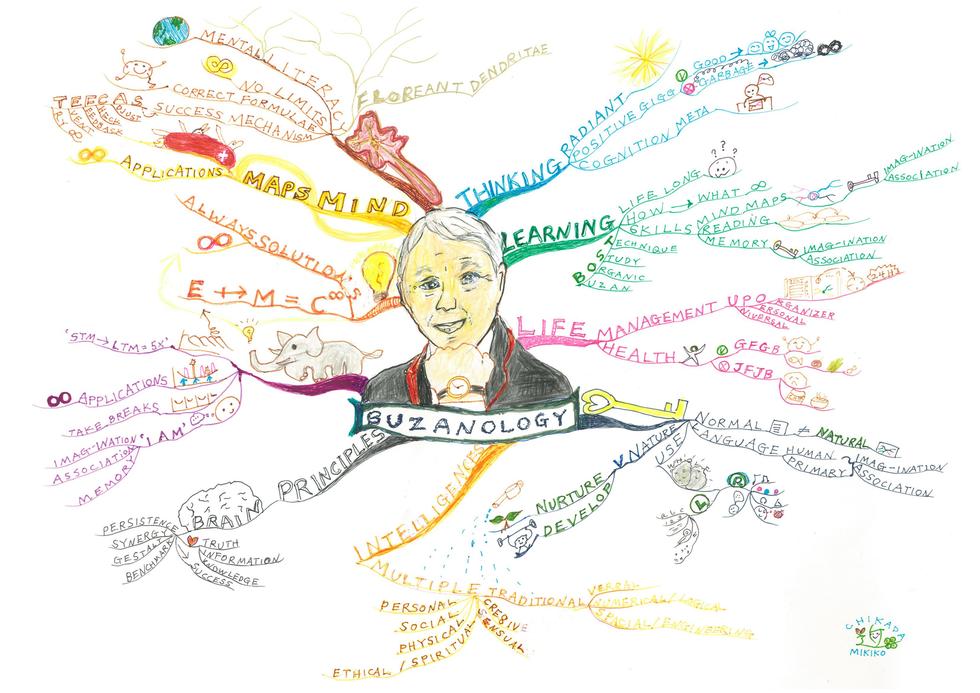 BUZANOLOGY
THINKING
RADIANT
POSITIVE GIGG
GOOD
GARBAGE
COGNITION META
LEARNING
LIFE LONG
? ? ?
HOW → WHAT ∞
SKILLS
MIND MAPS
IMAG-INATION
ASSOCIATION
READING
MEMORY
IMAG-INATION
ASSOCIATION
BOST
TECHNIQUE
STUDY
ORGANIC
BUZAN
LIFE
MANAGEMENT UPO
ORGANIZER
PERSONAL
UNIVERSAL
24H
HEALTH
GFGB
JFJB
NORMAL ≠ NATURAL
LANGUAGE HUMAN
PRIMARY
IMAG-INATION
ASSOCIATION
NURTURE V NATURE
DEVELOP
USE
WHOLE
L
R
a b c
INTELLIGENCES
MULTIPLE
TRADITIONAL
VERBAL
NUMERICAL/LOGICAL
SPACIAL/ENGINEERING
CRE8IVE
SENSUAL
PERSONAL
SOCIAL
PHYSICAL
ETHICAL / SPIRITUAL
PRINCIPLES
BRAIN
PERSISTENCE
SYNERGY
GESTALT
BENCHMARK
TRUTH
INFORMATION
KNOWLEDGE
SUCCESS
'STM → LTM = 5x'
∞ APPLICATIONS
TAKE BREAKS
'I AM'
IMAG-INATION
ASSOCIATION
MEMORY
E ↔ M = C∞
ALWAYS SOLUTION'S
∞
MAPS MIND
APPLICATIONS
∞
MENTAL LITERACY
NO LIMITS
CORRECT FORMULAE
SUCCESS MECHANISM
TEFCAS
TRY
EVENT
FEEDBACK
CHECK
ADJUST
FLOREANT DENDRITAE
CHIKADA
MIKIKO